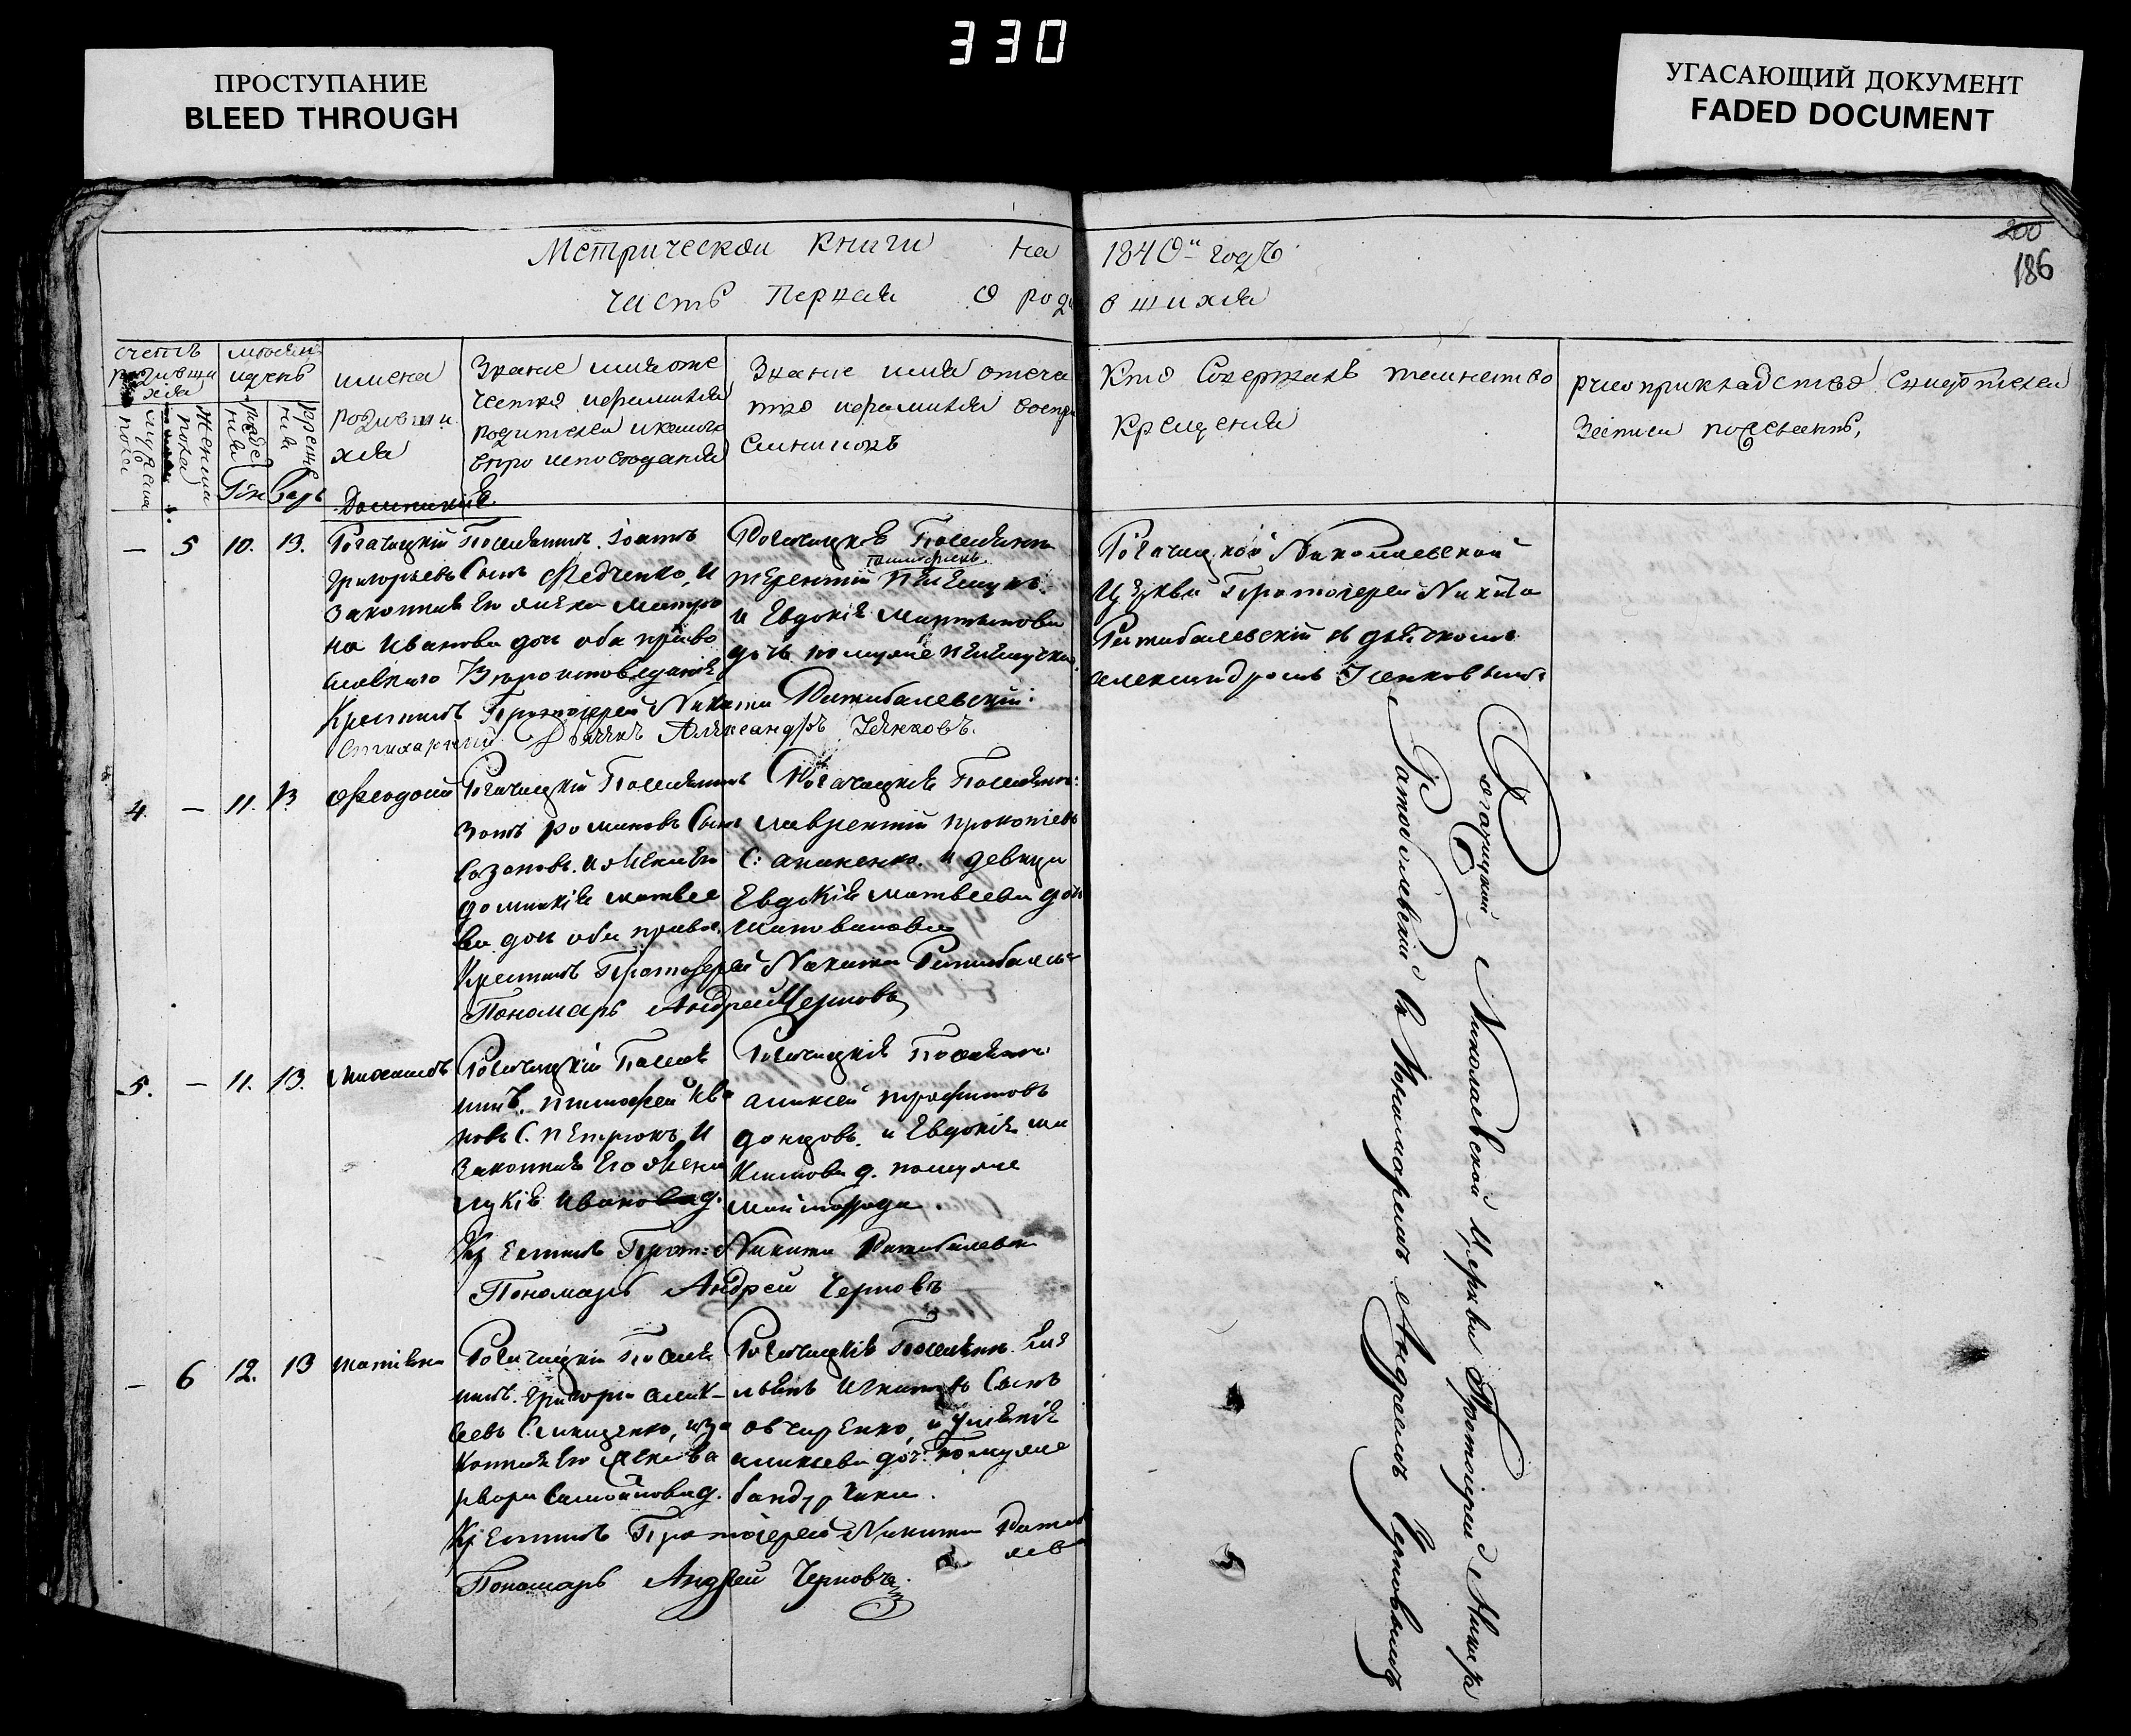 330
ПРОСТУПАНИЕ
BLEED THROUGH
УГАСАЮЩИЙ ДОКУМЕНТ
FADED DOCUMENT
200
186
Метрической книги на 1840й годъ
часть первая О роди вшихся
счетъ родивши хся
мужеска пола
женска пола
месяцъ и день
рожде нія
креще нія
Генварь
имена родивши хся
Званіе имя отче
ство и фамилія
родителей и какого
вероисповеданія
Званіе имя отече
тво и фамилія воспри
емниковъ
Кто Совершалъ таинство
Крещенія
рукоприкладство свидетелей
записи по
Домникія
— 5 10. 13. Рогачицкій Поселянинъ
Григорьевъ Сынъ Федченко, и
Законная Его жена Матро
на Иванова дочь оба право
славнаго Вероисповеданія
Крестилъ Протоіерей Никита Ратибалевскій
Стихарный Дьячекъ Александръ
Рогачицкіе Поселяне
Терентій
и Евдокія Мартынова
дочь по муже
Рогачицкой Николаевской
Церкви Протоіерей Никита
Ратибалевскій съ дьячкомъ
александромъ
4. — 11. 13 Феодосій Рогачицкій Поселянинъ
Зотъ романовъ Сынъ
Созоновъ. и жена Его
домникія матвее
ва дочь оба правос.
Крестилъ Протоіерей Никита Ратибалевс
Пономарь Андрей Черновъ
Рогачицкіе Поселяне:
лаврентій прокопіевъ
С: апаненко. и девица
Евдокія матвеева дочь
Шаповалова
5. — 11. 13. Михаилъ Рогачицкій Поселя
нинъ. тимофей Ива
новъ С. петрюкъ И
Законная Его жена
лукія Иванова д.
Крестилъ Прот: Никита Ратибалевск
Пономарь Андрей Черновъ
Рогачицкіе Поселяне
алексей трофимовъ
донцовъ. и Евдокія
Климова д. помуже
— 6 12. 13 татіяна Рогачицкій Поселя
нинъ. Григорій алек-
сеевъ С. Онищенко, и за
конная Его жена ва
рвара Самойлова д.
Крестилъ Протоіерей Никита Ратиба
лев
Пономарь Андрей Черновъ
Рогачицкіе Поселяне. Еме
льянъ Игнатовъ Сынъ
овчаренко, и
дочь помуже
бандурчака.
Рогачицкий Николаевской Церкви Протоіерей Никита
Ратиболевский съ Пономаремъ Андреемъ Черновымъ